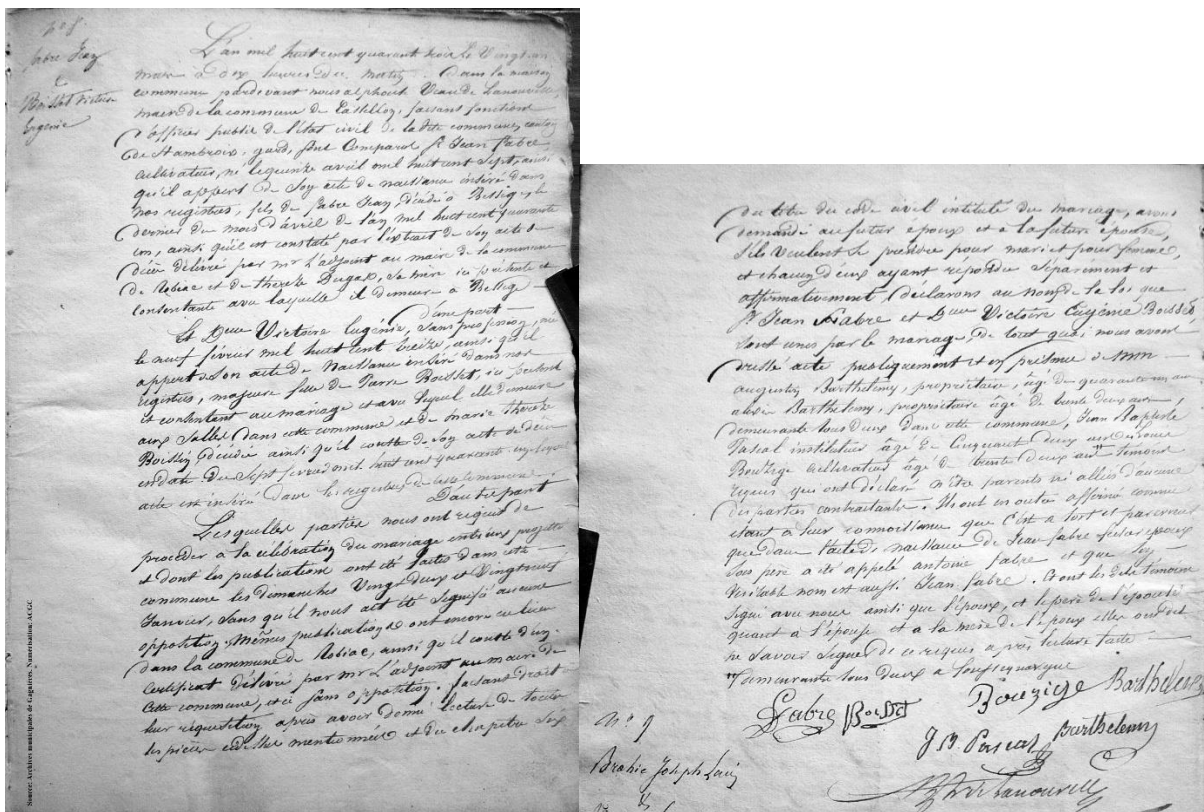 N° 8
fabre Jean
&
Boisset Victoire
Eugénie
L'an mil huit cent quarante trois le Vingt un
mars a dix heures du matin. dans la maison
commune pardevant nous alphonse Vean de Lanouvelle,
maire de la commune de Castillon, faisant fonctions
d'officier public de l'état civil de la dite commune, canton
de St ambroix, gard, sont Comparus Sr Jean fabre
cultivateur, né le quinze avril mil huit cent sept, ainsi
qu'il appert de son acte de naissance inséré dans
nos registres, fils de fabre Jean, décédé à Bessège, le
dernier du mois d'avril de l'an mil huit cent quarante
un, ainsi qu'il est constaté par l'extrait de son acte de
décès délivré par mr L'adjoint au maire de la commune
de Robiac et de thérèse Dugas, sa mère ici présente et
consentante avec laquelle il demeure à Bessège
D'une part
Et Dlle Victoire Eugénie, sans profession, née
le neuf février mil huit cent treize, ainsi qu'il
appert de son acte de Naissance inséré dans nos
registres, majeure fille de Pierre Boisset, ici présent
et consentant au mariage et avec lequel elle demeure
aux Salles dans cette commune et de marie thérèse
Boissin, décédée ainsi qu'il conste de son acte de décès
en date du Sept février mil huit cent quarante
acte est inséré dans les registres de cette commune.
D'autre part
Lesquelles parties nous ont requis de
procéder à la célébration du mariage entr'eux projetté
et dont les publications ont été faites dans cette
commune les dimanches Vingt deux et Vingt neuf
Janvier, sans qu'il nous ait été signifié aucune
opposition. Mêmes publications ont encore eu lieu
dans la commune de Robiac, ainsi qu'il conste d'un
Certificat délivré par mr L'adjoint au maire de
cette commune, et ici sans opposition. faisant droit
leur réquisition après avoir donné lecture de toutes
les pièces ci dessus mentionnées et du chapitre Six
du titre du code civil intitulé du mariage, avons
demandé au futur époux et à la future épouse,
s'ils veulent se prendre pour mari et pour femme,
et chacun d'eux ayant répondu Séparément et
affirmativement, Déclarons au nom de la loi que
Sr Jean Fabre et Dlle Victoire Eugénie Boisset
sont unis par le mariage, de tout quoi nous avons
dressé acte publiquement et en présence de MM
augustin Barthelemy, propriétaire, âgé de quarante un ans
alexis Barthelemy, propriétaire âgé de trente deux ans,
demeurants tous deux dans cette commune, Jean Baptiste
Pascal instituteur âgé de Cinquante deux ans
Bouzige cultivateur âgé de trente deux ans témoins
requis qui ont déclaré n'être parents ni alliés d'aucune
des parties contractantes. Ils ont en outre affirmé comme
étant à leur connoissance que c'est à tort et par erreur
que dans l'acte de naissance de Jean fabre futur époux
son père a été appelé antoine fabre et que son
véritable nom est aussi Jean fabre. Et ont les dits témoins
signé avec nous ainsi que l'époux, et le père de l'épouse
quant à l'épouse et a la mère de l'époux elles ont dit
ne savoir signer de ce requis après lecture faite
demeurants tous deux a
Fabre Boisset Bouzige Barthelemy
J B Pascal Barthelemy
N° 9
Brahic Joseph Louis
&